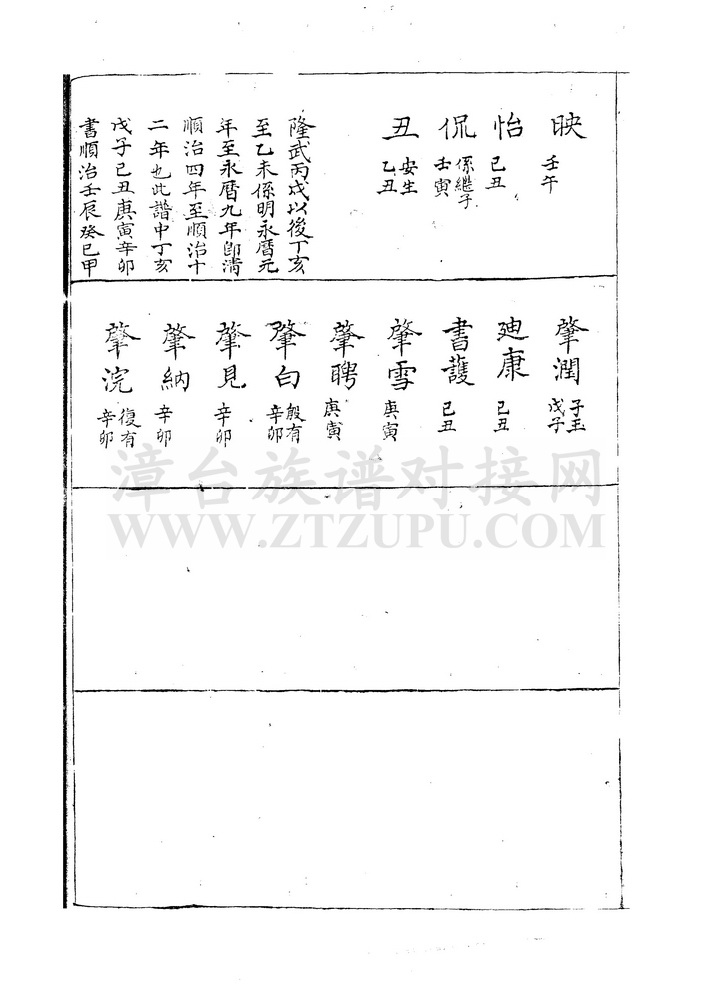 映
壬午
怡
己丑
侃
係繼子
壬寅
丑
安生
乙丑
隆武丙戌以後丁亥
至乙未係明永曆元
年至永曆九年即清
順治四年至順治十
二年也此譜中丁亥
戊子己丑庚寅辛卯
書順治壬辰癸巳甲
肇潤
子玉
戊子
廸康
己丑
書護
己丑
肇雪
庚寅
肇聘
庚寅
肇白
般有
辛卯
肇見
辛卯
肇納
辛卯
肇浣
復有
辛卯
漳台族谱对接网
WWW.ZTZUPU.COM